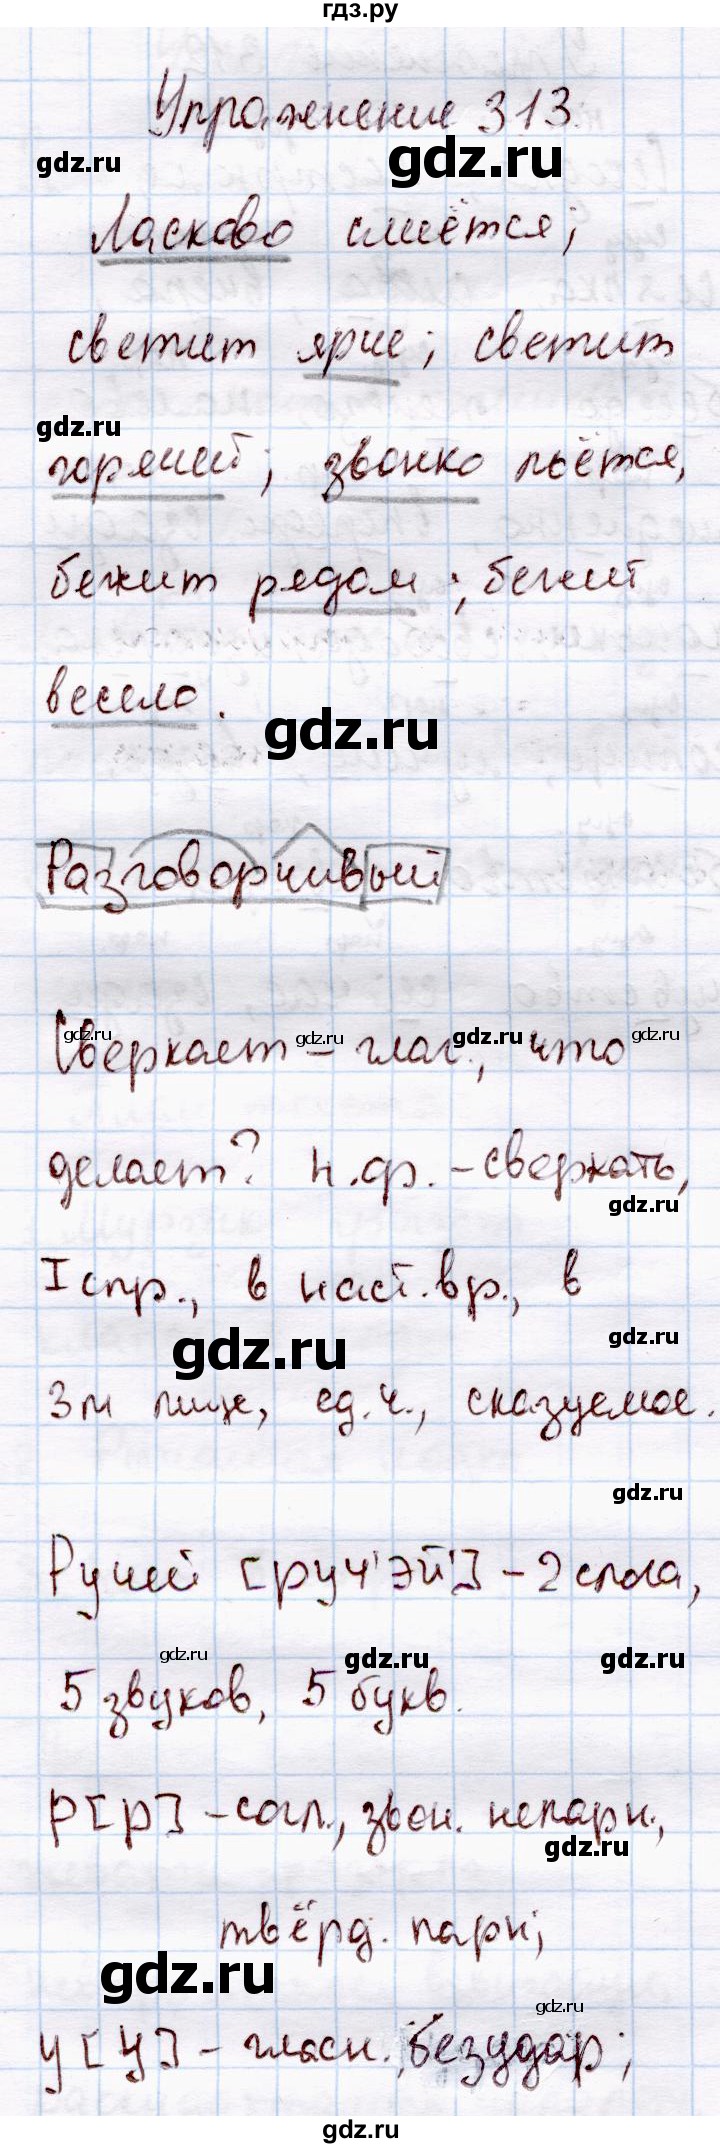 гдз.ру
Упражнение 313.
gdz.ru gdz.ru
Ласково смеётся;
светит ярче; светит
gdz.ru
горячей; звонко льётся,
бежит рядом; бежит
весело.
gdz.ru
Разговорчивый
Сверкает – глаг., что
gdz.ru gdz.ru gdz.ru gdz.ru
делает? н.ф. – сверкать,
gdz.ru
I спр., в наст.вр., в
gdz.ru gdz.ru
3м лице, ед.ч., сказуемое.
gdz.ru
Ручей [руч'эй'] – 2 слога,
gdz.ru gdz.ru gdz.ru
5 звуков, 5 букв.
р [р] – согл., звон. непарн.,
gdz.ru
твёрд. парн;
gdz.ru gdz.ru
у [у] – гласн., безудар;
gdz.ru